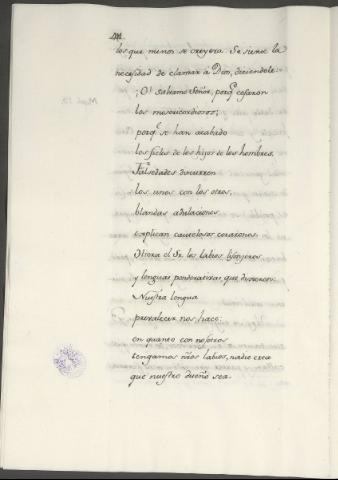 los que menos se creyera. Se siente la
necesidad de clamar à Dios, diciendole:
¡O! salvame Señor, porq.e cesaron
los misericordiosos;
porq.e se han acabado
los fieles de los hijos de los hombres.
Falsedades discurren
los unos con los otros,
blandas adulaciones
explican cautelosos corazones.
Destruya el Sr. los labios lisongeros
y lenguas ponderativas que dixeron:
Nuestra lengua
prevalecer nos hace:
en quanto con nosotros
tengamos nr̃os labios, nadie crea
que nuestro dueño sea.